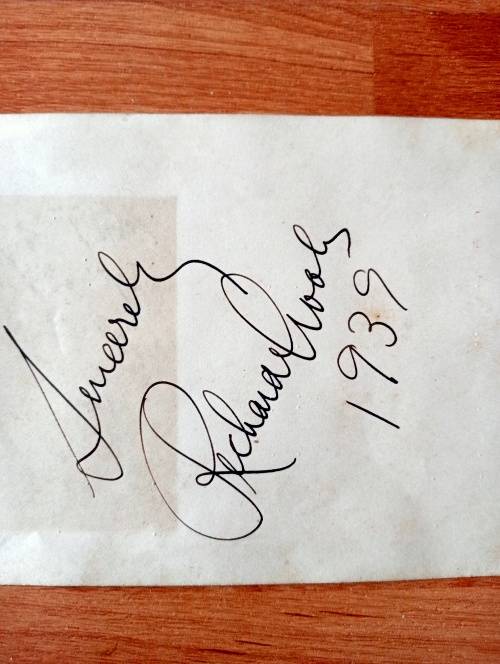 Sincerely
Richard Crooks
1939